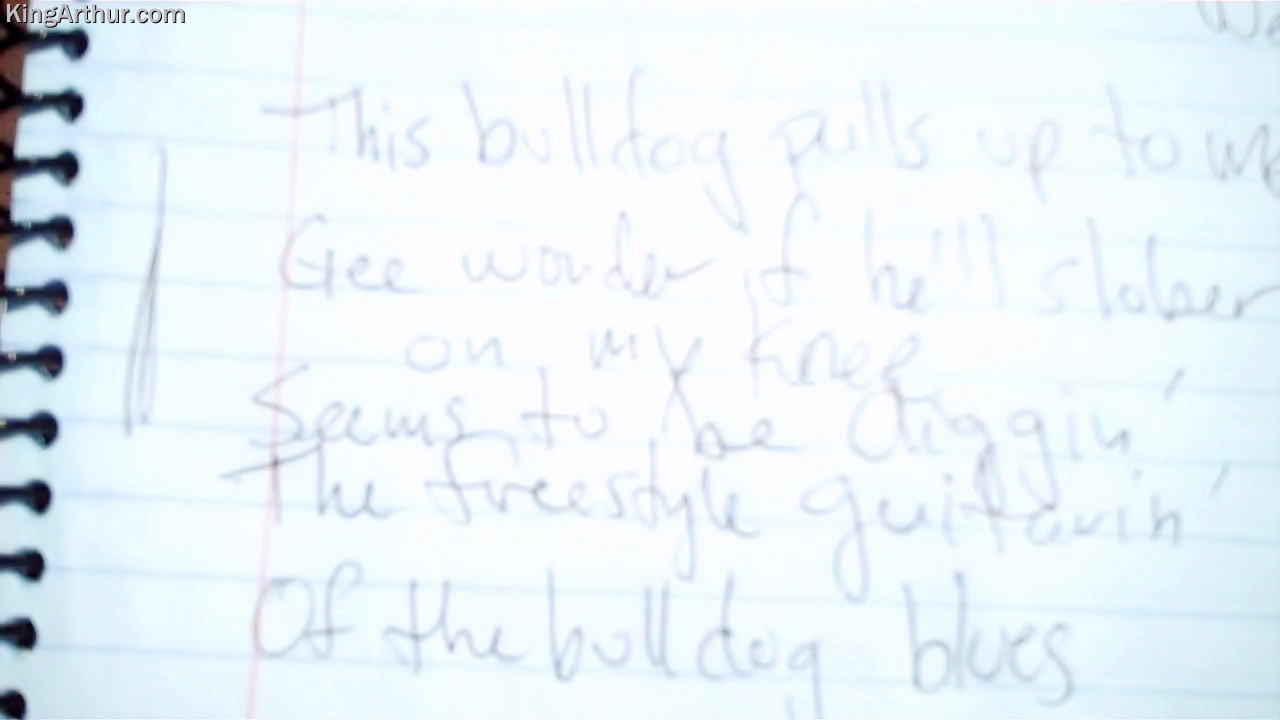 KingArthur.com
This bulldog pulls up to me
Gee wonder if he'll slober
on my knee
Seems to be diggin'
The freestyle guitarin'
Of the bulldog blues